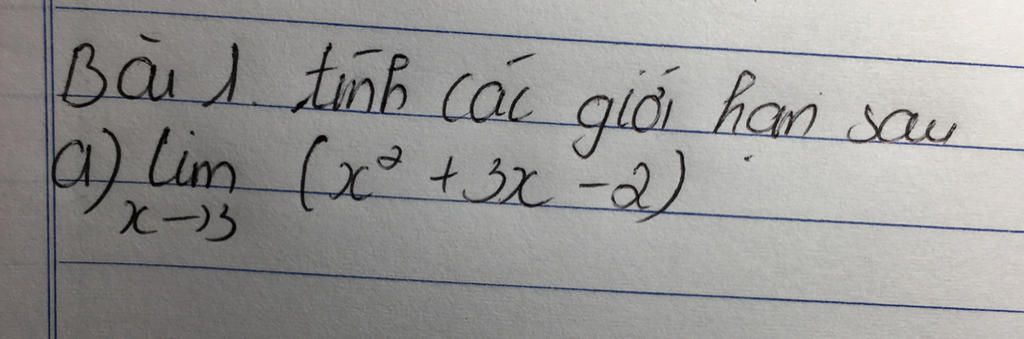 Bài 1. tính các giới hạn sau
a) lim (x² + 3x - 2)
x→3